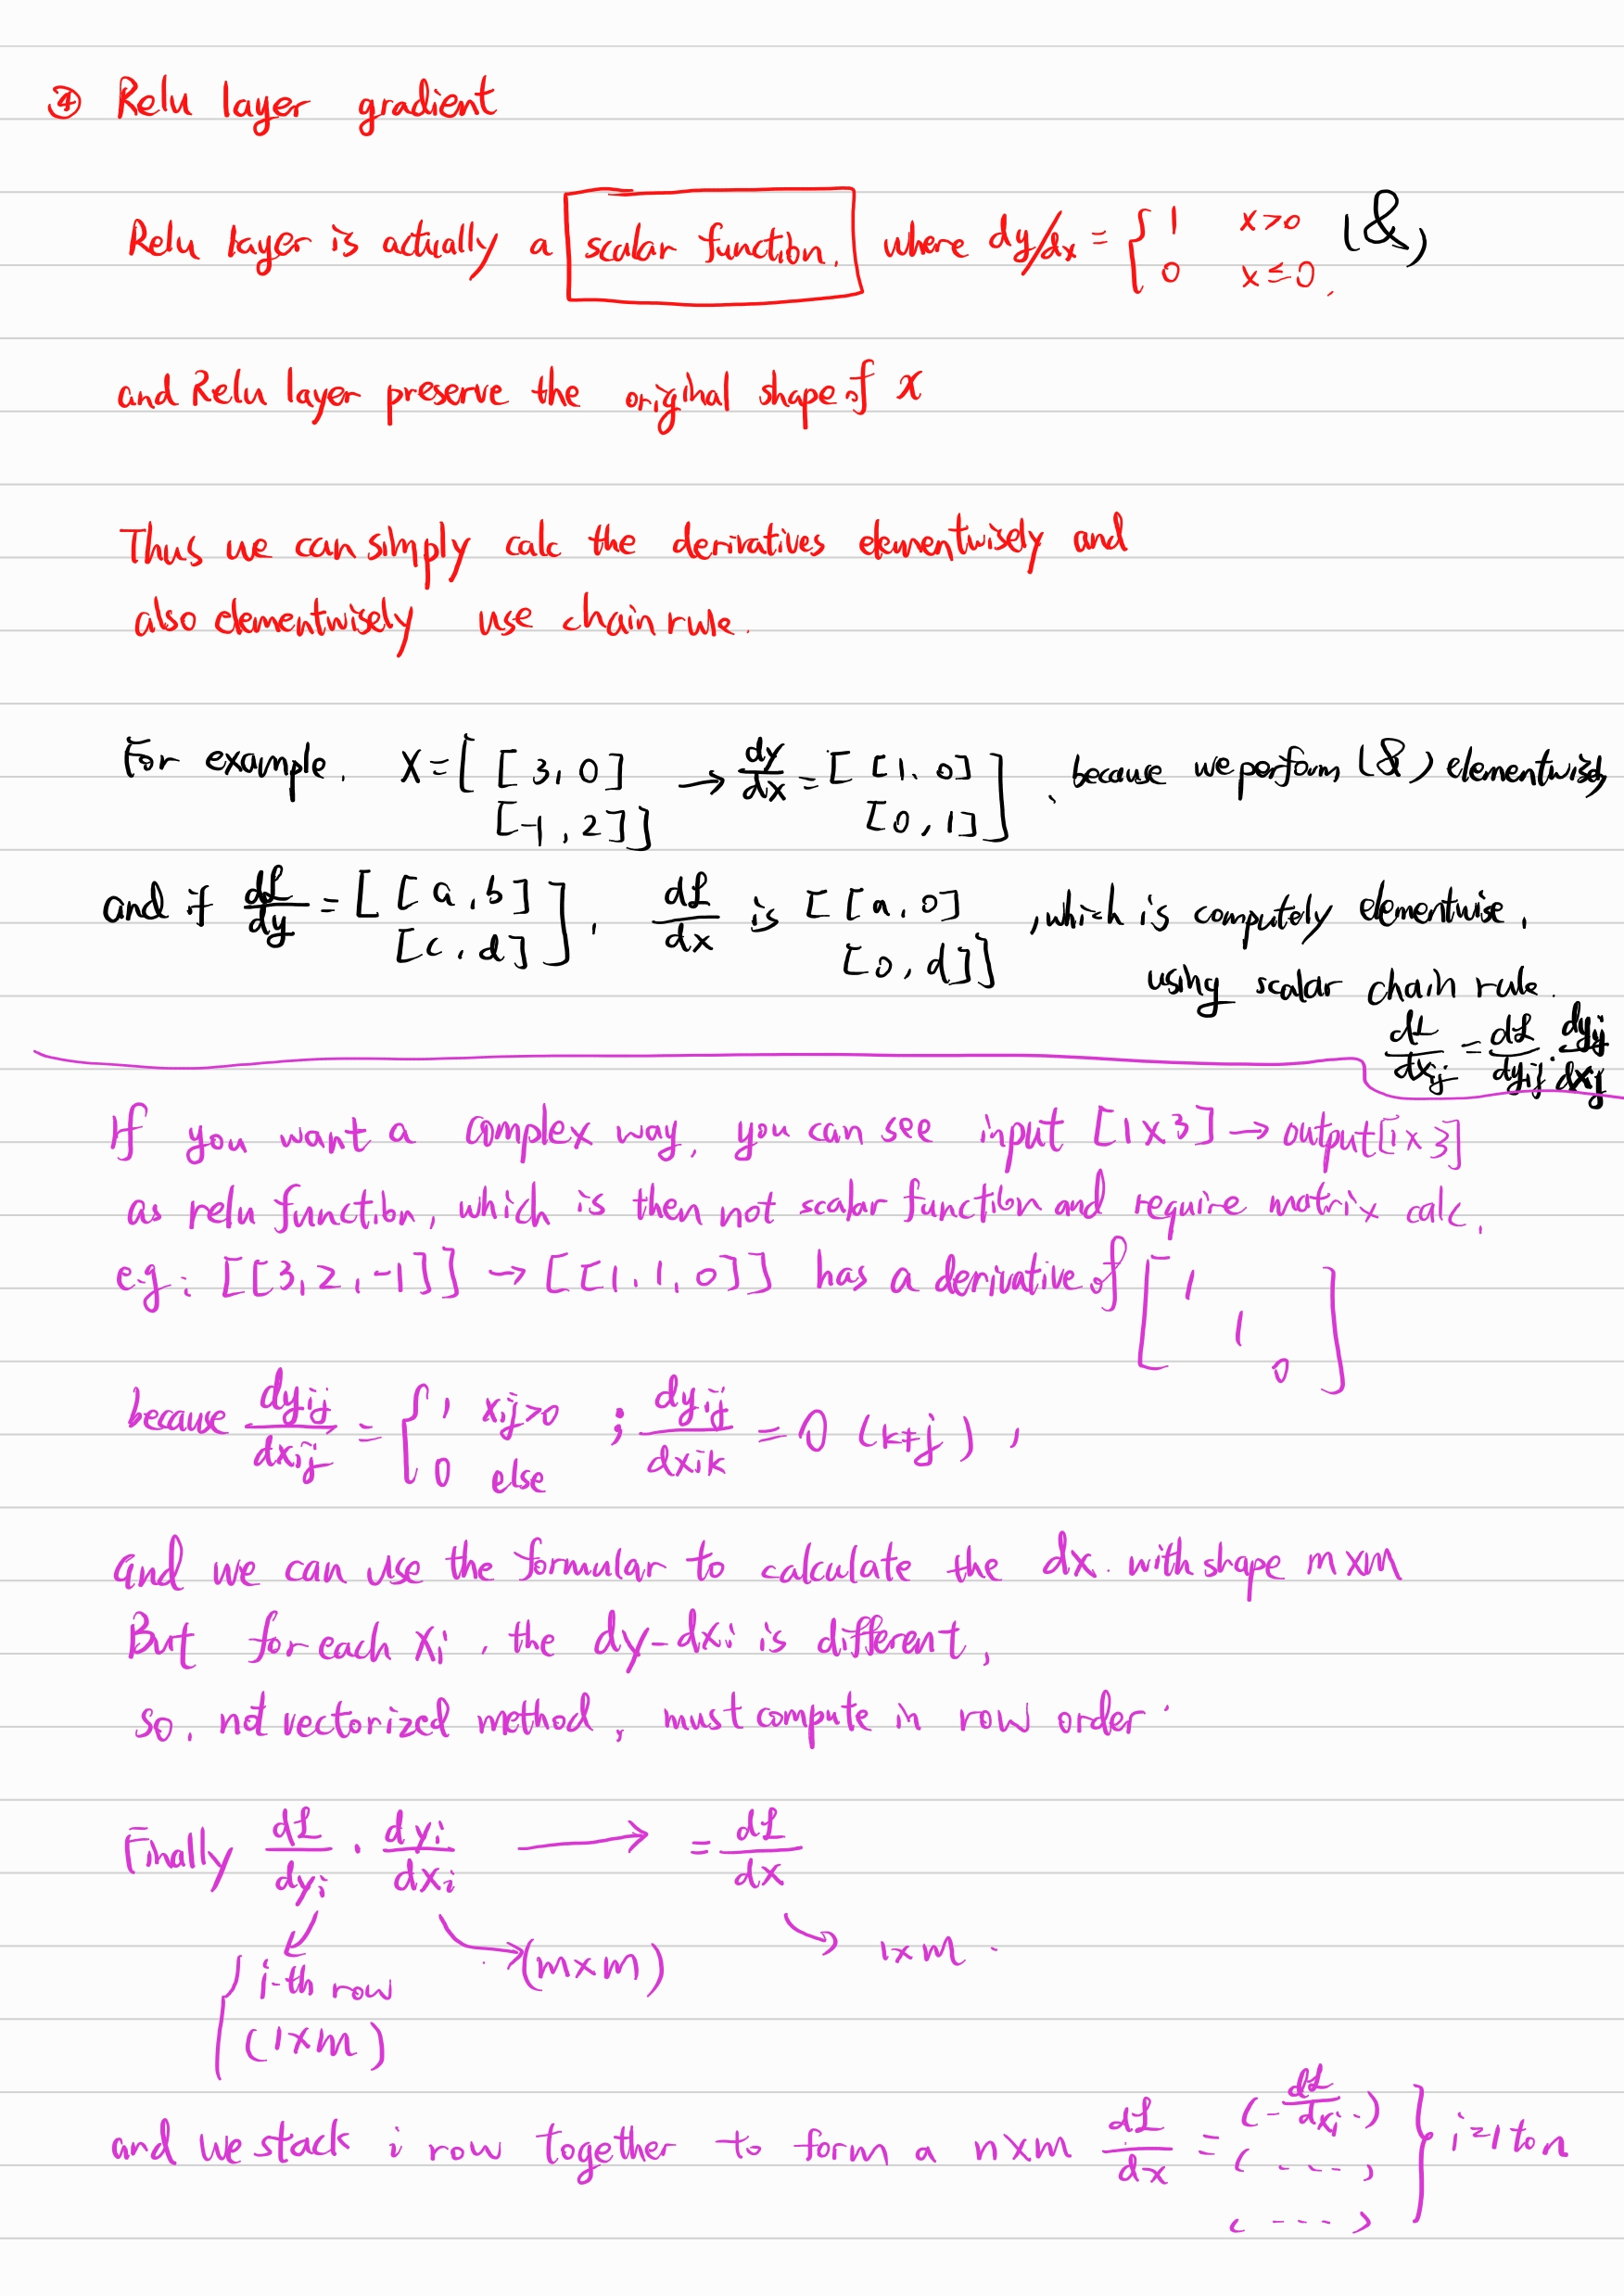 ④ Relu layer gradient
Relu layer is actually a scalar function. where dy/dx = { 1 x>0 (&)
0 x≤0.
and Relu layer preserve the original shape of x
Thus we can simply calc the derivatives elementwisely and
also elementwisely use chain rule.
For example. X=[ [3,0] → dy/dx = [ [1.0] . because we perform (&) elementwisely
[-1,2]] [0,1] ]
and if dL/dy = [ [a,b] ] . dL/dx is [ [a,0] , which is computely elementwise.
[c,d] [0,d]]
using scalar chain rule.
dL/dxij = dL/dyij · dyij/dxij
If you want a complex way, you can see input [1x3] → output [1x3]
as relu function, which is then not scalar function and require matrix calc.
e.g: [[3,2,-1]] → [[1.1,0]] has a derivative of [ 1
1
0 ]
because dyij/dxij = { 1 xij>0 ; dyij/dxik = 0 (k≠j) ,
0 else
and we can use the formular to calculate the dx. with shape mxm
But for each xi, the dy-dxi is different,
so. not vectorized method, must compute in row order.
Finally dL/dyi · dyi/dxi → = dL/dx
i-th row (mxm) 1xm.
(1xm)
and we stack i row together to form a nxm dL/dx = (- dL/dxi -) } i=1 to n
( ---- )
( ---- )